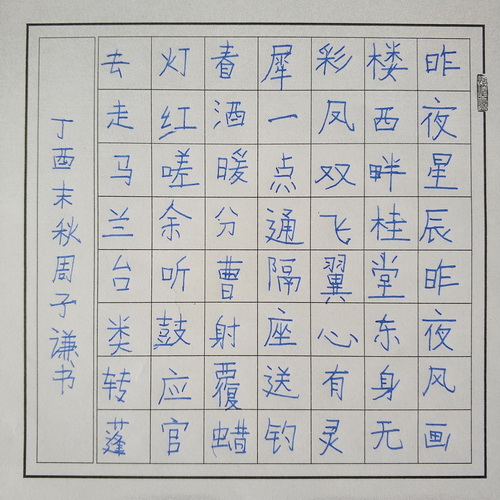 昨夜星辰昨夜风画
楼西畔桂堂东身无
彩凤双飞翼心有灵
犀一点通隔座送钓
春酒暖分曹射覆蜡
灯红嗟余听鼓应官
去走马兰台类转蓬
丁酉末秋周子谦书